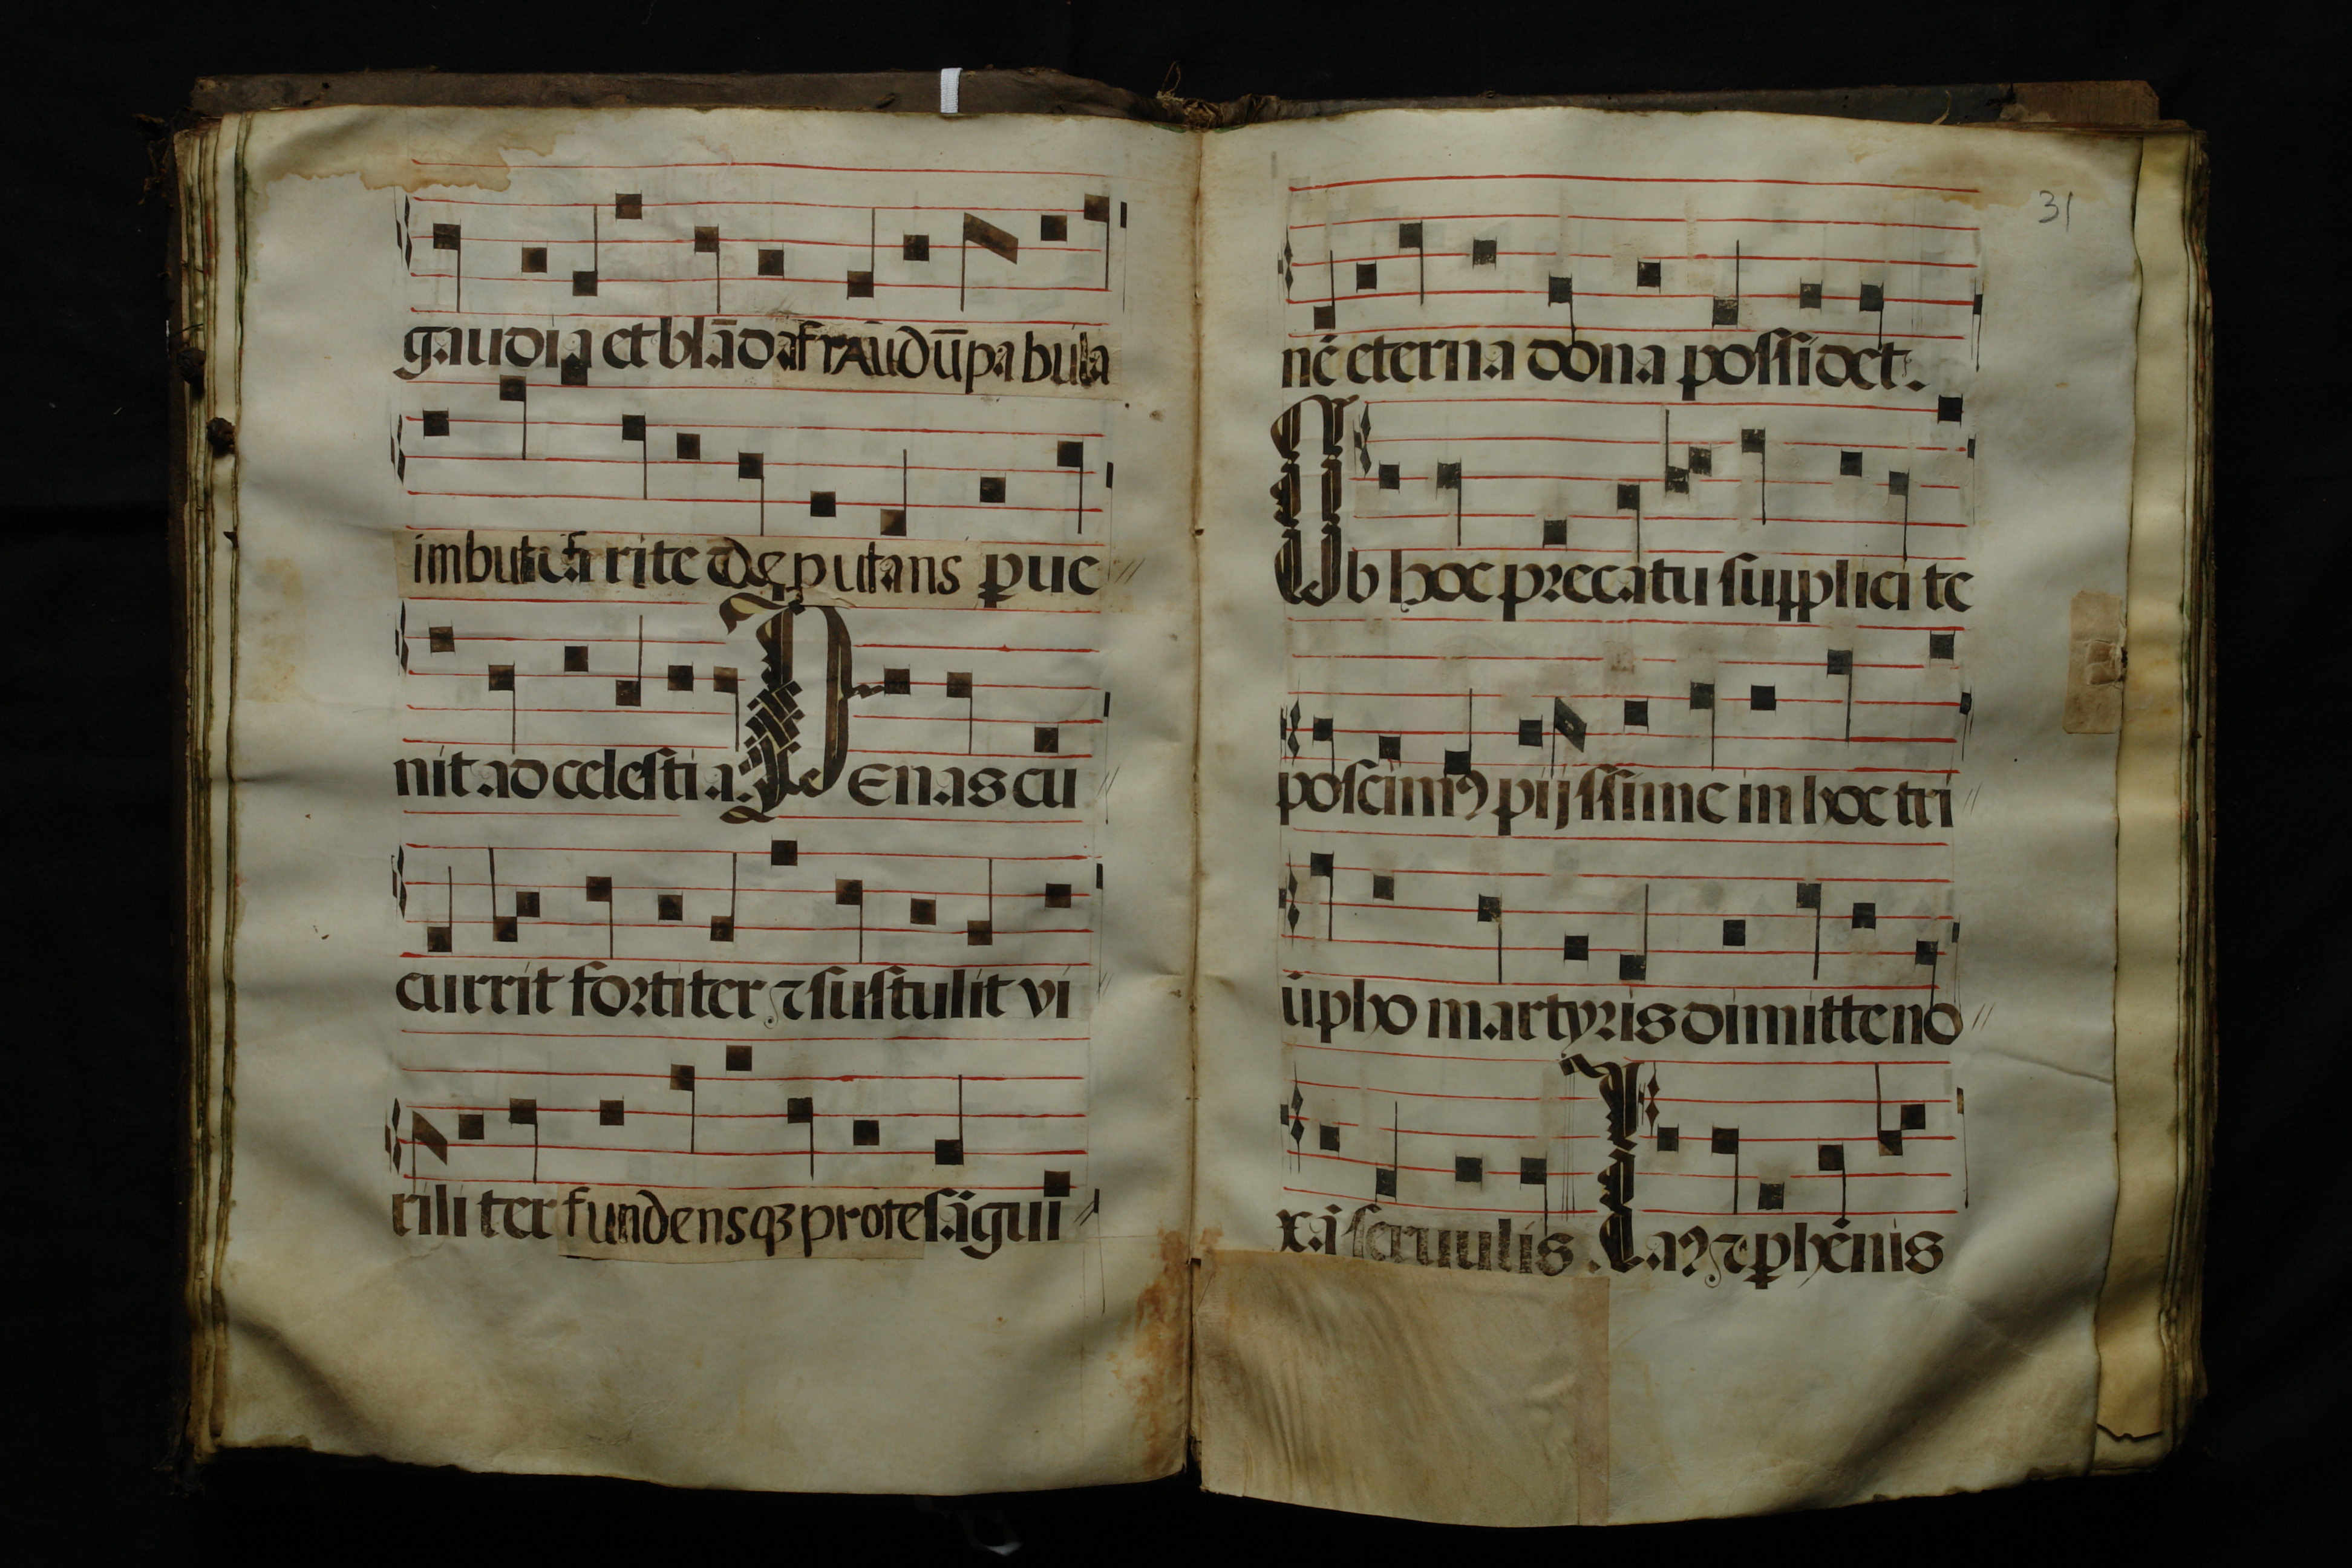 gaudia et blādafraudūpabula
imbuta fa rite deputans perue
nit ad celestia. Penas cu
currit fortiter ⁊ sustulit vi
riliter fundensqȝ pro te sāgui
31
nē eterna dona possidet.
Ob hoc precatu supplici te
poscimꝰ pijssime in hoc tri
ūpho martyris dimitte no
xā seruulis. Laꝰ ⁊ perhēnis